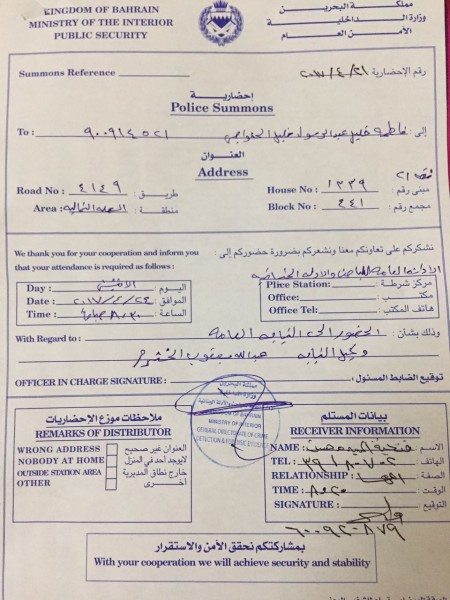 KINGDOM OF BAHRAIN
MINISTRY OF THE INTERIOR
PUBLIC SECURITY
مملكة البحرين
وزارة الداخلية
الأمن العام
Summons Reference
رقم الإحضارية : ٢٠١٧/٤/٢١
إحضارية
Police Summons
To : ٩٠٠٩١٤٥٢١ فاطمة خليل عبدالرسول خليل الحلواجي إلى :
العنوان
Address
Road No : ٤١٤٩ طريق :
House No : ١٣٣٩ مبنى رقم :
Area: منطقة :
Block No : ٢٤١ مجمع رقم :
نشكركم على تعاونكم معنا ونشعركم بضرورة حضوركم إلى :
We thank you for your cooperation and inform you
that your attendance is required as follows :
الادارة العامة للمباحث والادلة الجنائية
Day : الاثنين اليوم :
Date : ٢٠١٧/٤/٢٤ الموافق :
Time : ٨،٣٠ صباحا الساعة :
Plice Station: مركز شرطة :
Office: مكتب :
Office Tel: هاتف المكتب :
With Regard to : الحضور الى النيابة العامة وذلك بشأن :
وكيل النيابة عبدالله يعقوب
OFFICER IN CHARGE SIGNATURE : توقيع الضابط المسئول :
KINGDOM OF BAHRAIN
MINISTRY OF INTERIOR
GENERAL DIRECTORATE OF CRIME
DETECTION & FORENSIC EVIDENCE
ملاحظات موزع الإحضاريات
REMARKS OF DISTRIBUTOR
WRONG ADDRESS العنوان غير صحيح
NOBODY AT HOME لايوجد أحد في المنزل
OUTSIDE STATION AREA خارج نطاق المديرية
OTHER أخرى
بيانات المستلم
RECEIVER INFORMATION
NAME: فتحية السيد حسن الاسم :
TEL : الهاتف :
RELATIONSHIP : امها الصفة :
TIME : ٨،٢٠ الوقت :
SIGNATURE : التوقيع :
٦٠٠٩٢٠٨٧٩
بمشاركتكم نحقق الأمن والاستقرار
With your cooperation we will achieve security and stability